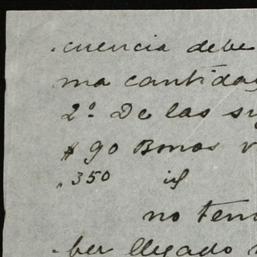 cuencia debe
ma cantidad
2º De las su
$90 Bonos v
" 350 id
no ten
ber llegado